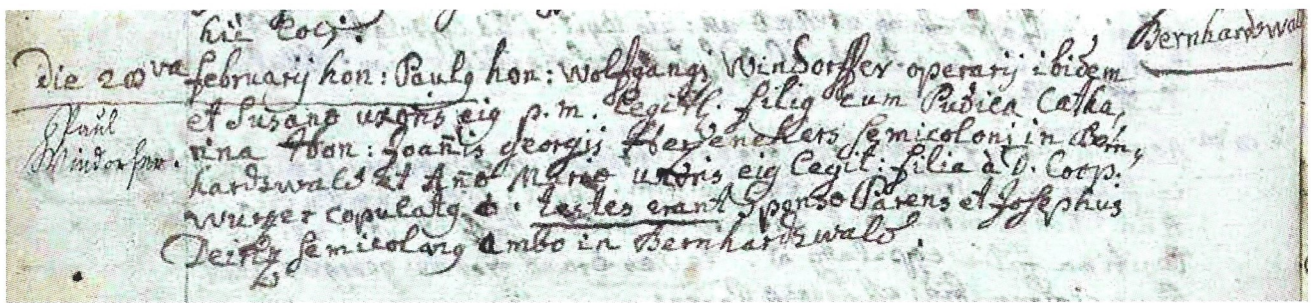 hic loci.
Bernhardswald
Die 28va februarij hon: Paulg hon: Wolfgangi Windorffer operarij ibidem
Paul
Windorfer.
et Susano uxoris eig p.m. Legitt. filig cum Pudica Catha,
rina Hon: Joanis Georgij semicoloni in Bern,,
hardswald et Ano Mario uxoris eig Legit: filia à D. Coop.
Wurzer copulatg e. testes erant Sponso Parens et Josephus
semicolong ambo in Bernhardswald.